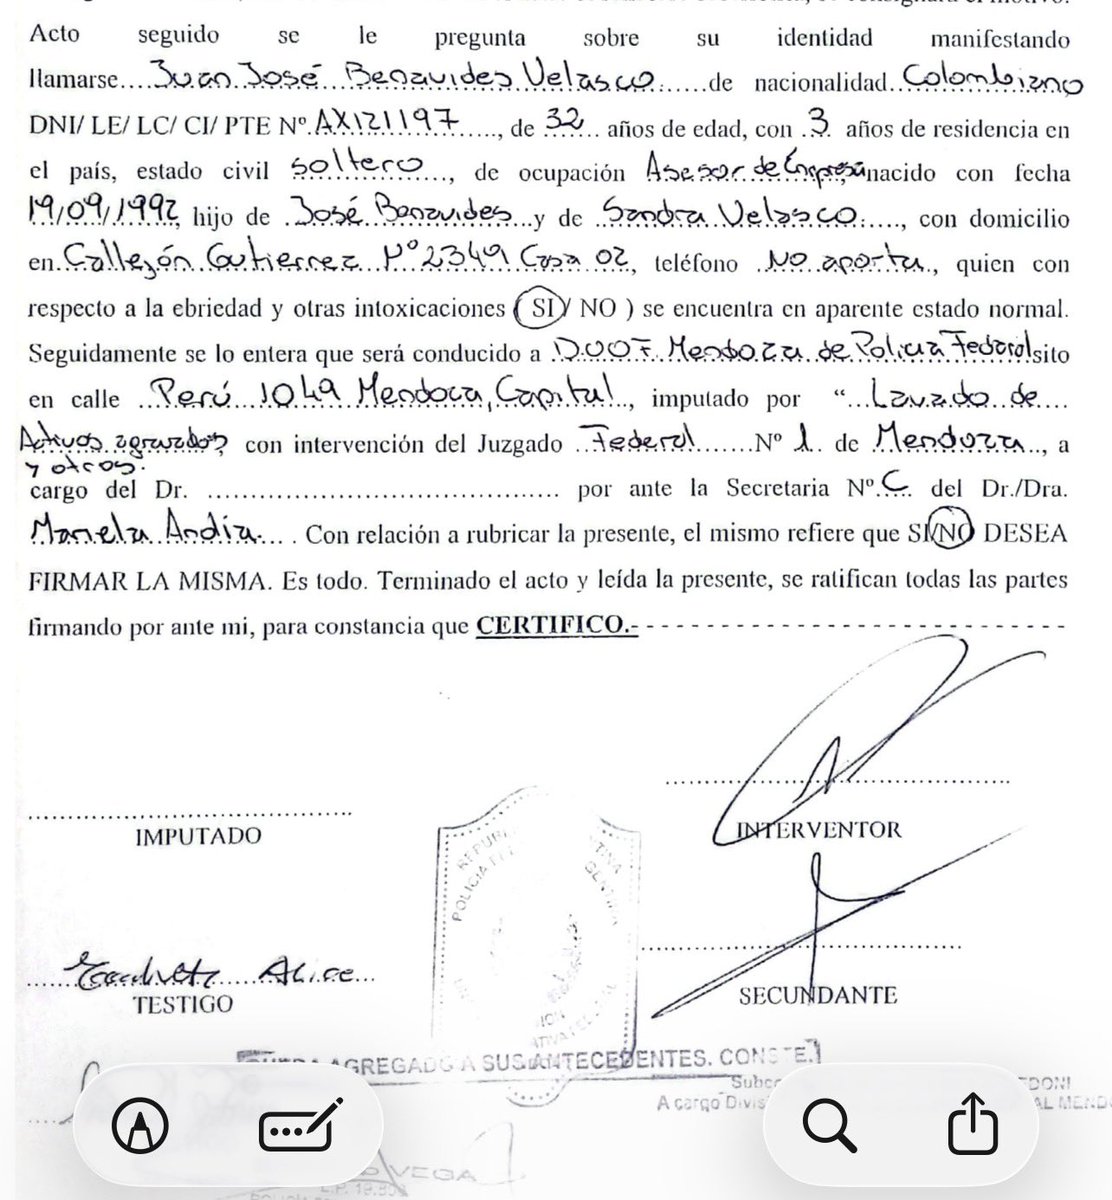 Acto seguido se le pregunta sobre su identidad manifestando
llamarse....Juan José Benavides Velasco......de nacionalidad..Colombiano
DNI/ LE/ LC/ CI/ PTE Nº.AX121197......, de 32.. años de edad, con .3. años de residencia en
el país, estado civil soltero....., de ocupación Asesor de Empresas nacido con fecha
19/09/1992, hijo de .José Benavides...y de .Sandra Velasco....., con domicilio
en..Callejón Gutierrez Nº2349 Casa 02, teléfono .No aporta., quien con
respecto a la ebriedad y otras intoxicaciones ( SI / NO ) se encuentra en aparente estado normal.
Seguidamente se lo entera que será conducido a DUOF Mendoza de Policia Federal sito
en calle ..Perú 1049 Mendoza, Capital.., imputado por “...Lavado de....
Activos agravados, con intervención del Juzgado ..Federal.......Nº 1. de Mendoza.., a
y otros.
cargo del Dr. ........................................ por ante la Secretaria Nº.C.. del Dr./Dra.
Mariela Andia.... . Con relación a rubricar la presente, el mismo refiere que SI/NO DESEA
FIRMAR LA MISMA. Es todo. Terminado el acto y leída la presente, se ratifican todas las partes
firmando por ante mi, para constancia que CERTIFICO.- - - - - - - - - - - - - - - - - - - - - - - - - - - -
IMPUTADO
INTERVENTOR
Alice
TESTIGO
SECUNDANTE
AGREGADO A SUS ANTECEDENTES. CONSTE.
A cargo
VEGA